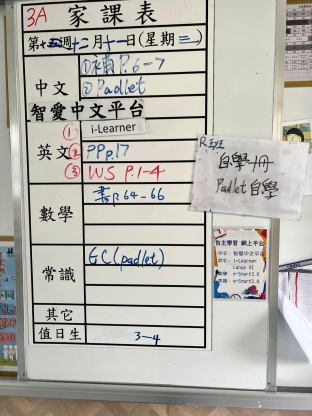 3A 家課表
第十五週十二月十一日(星期三)
中文 ①補 P.6-7
② Padlet
智愛中文平台
① i-Learner
英文 ② PP p.17
③ WS P.1-4
數學 書P.64-66
常識 GC(padlet)
其它
值日生 3-4
R班
自學冊
Padlet自學
自主學習 網上平台
中文: 智愛中文平台
英文: i-Learner
e-Smart2.0
e-Smart2.0